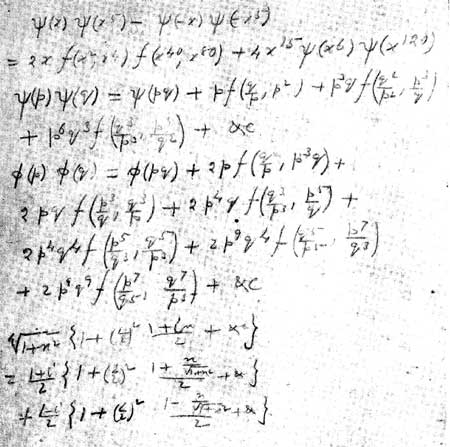 ψ(x) ψ(x⁵) − ψ(−x) ψ(−x⁵)
= 2x f(x⁴, x⁸) f(x⁴⁰, x⁸⁰) + 4x¹⁵ ψ(x⁶) ψ(x¹²⁰)
ψ(p) ψ(q) = ψ(pq) + p f(q/p, p²) + p³q f(q²/p², p³/q)
+ p⁶q³ f(q³/p³, ) + &c
φ(p) φ(q) = φ(pq) + 2p f(q/p, p³q) +
2pq f(p³/q, q³/p) + 2p⁴q f(q³/p³, p⁵/q) +
2p⁴q⁴ f(p⁵/q³, q⁵/p³) + 2p⁹q⁴ f( , p⁷/q³)
+ 2p⁹q⁹ f(p⁷/q⁵, q⁷/p⁵) + &c
{1 + (½)² (1+ix)/2 + &c}
= (1+i)/2 {1 + (½)² (1 + x/√(1+x²))/2 + &}
+ (1−i)/2 {1 + (½)² (1 − x/√(1+x²))/2 + &}